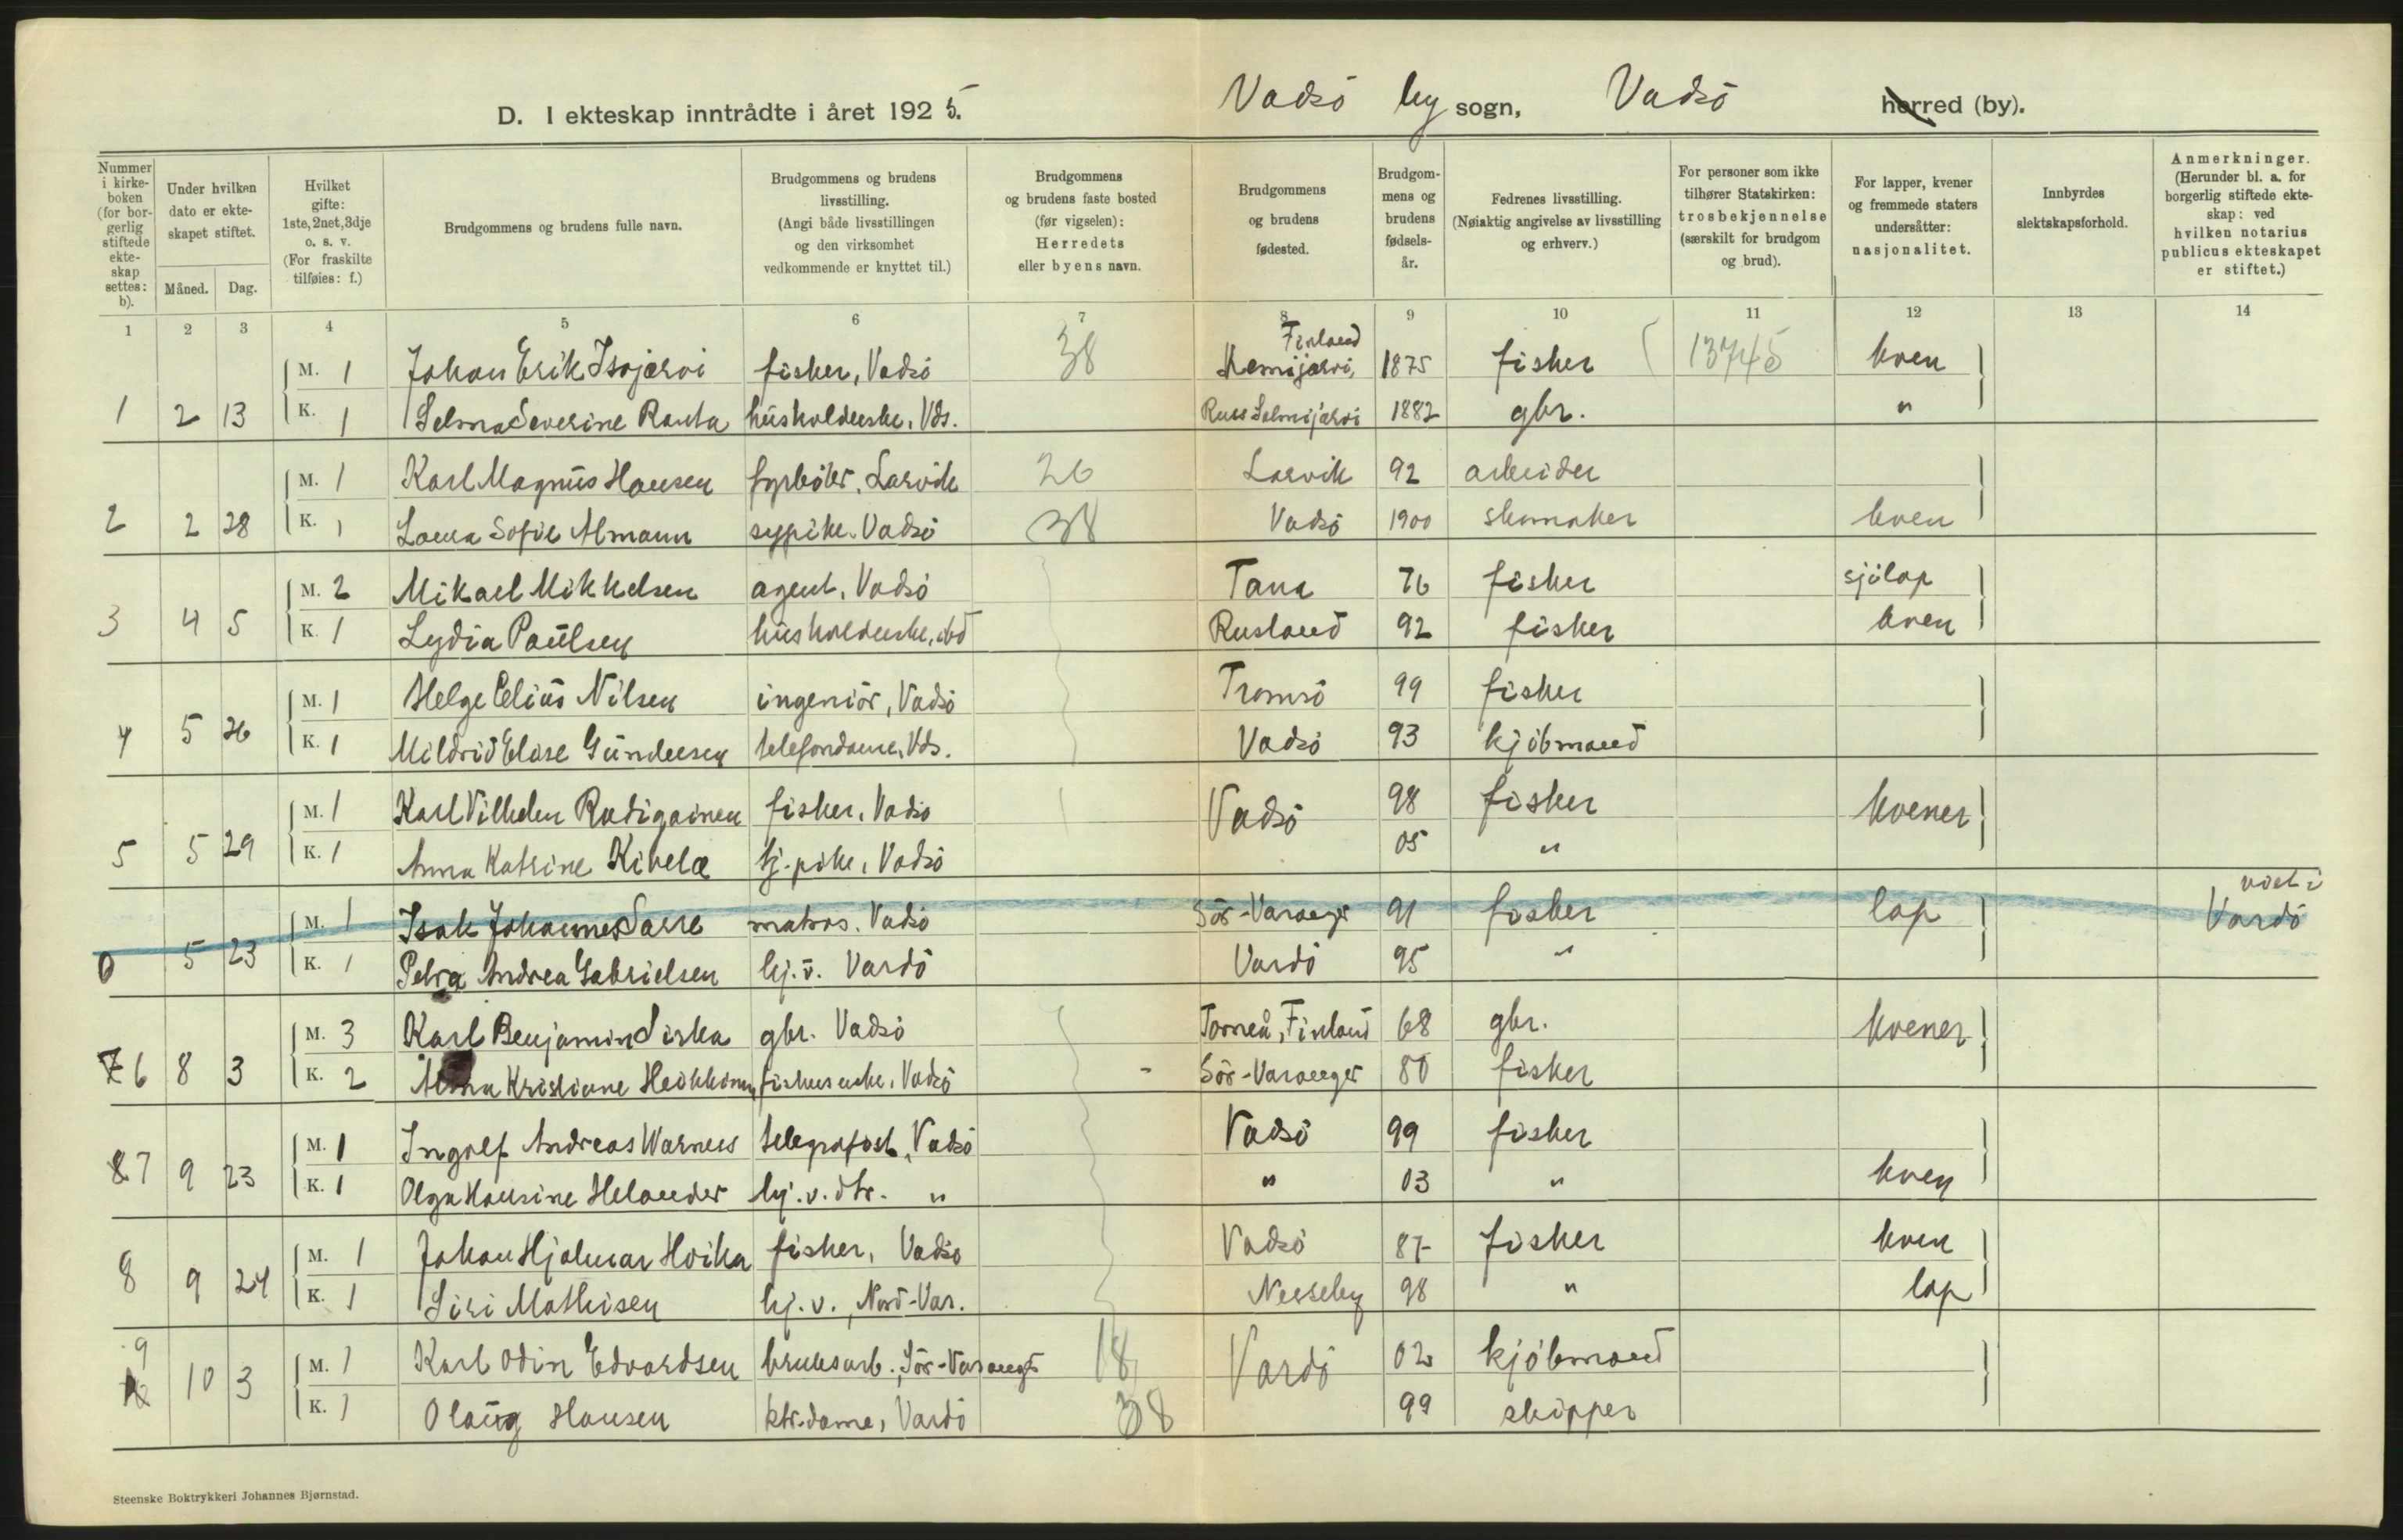 D. I ekteskap inntrådte i året 1925. Vadsö by sogn, Vadsö herred (by).
Nummer i kirke- boken (for bor- gerlig stiftede ekte- skap settes: b).
Under hvilken dato er ekte- skapet stiftet.
Måned. Dag.
Hvilket gifte: 1ste, 2net, 3dje o. s. v. (For fraskilte tilføies: f.)
Brudgommens og brudens fulle navn.
Brudgommens og brudens livsstilling. (Angi både livsstillingen og den virksomhet vedkommende er knyttet til.)
Brudgommens og brudens faste bosted (før vigselen): Herredets eller byens navn.
Brudgommens og brudens fødested.
Brudgom- mens og brudens fødsels- år.
Fedrenes livsstilling. (Nøiaktig angivelse av livsstilling og erhverv.)
For personer som ikke tilhører Statskirken: trosbekjennelse (særskilt for brudgom og brud).
For lapper, kvener og fremmede staters undersåtter: nasjonalitet.
Innbyrdes slektskapsforhold.
Anmerkninger. (Herunder bl. a. for borgerlig stiftede ekte- skap: ved hvilken notarius publicus ekteskapet er stiftet.)
1 2 3 4 5 6 7 8 9 10 11 12 13 14
M. 1 Johan Erik Isojärvi fisker, Vadsö 38 Finland Kemijärvi, 1875 fisker 13745 kven
1 2 13 K. 1 Selma Severine Rauta husholderske, Vds. Russ Salmijärvi 1882 gbr. "
M. 1 Karl Magnus Hansen fyrböter, Larvik 26 Larvik 92 arbeider
2 2 28 K. 1 Laura Sofie Almann sypike, Vadsö 38 Vadsö 1900 skomaker kven
M. 2 Mikael Mikkelsen agent, Vadsö Tana 76 fisker sjölap
3 4 5 K. 1 Lydia Paulsen husholderske, ibd Rusland 92 fisker kven
M. 1 Helge Elias Nilsen ingeniör, Vadsö Tromsö 99 fisker
4 5 26 K. 1 Mildrid Elise Gundersen telefondame, Vds. Vadsö 93 kjöbmand
M. 1 Karl Vilhelm Radigainen fisker, Vadsö Vadsö 98 fisker kvener
5 5 29 K. 1 Anna Katrine Kivelæ tj. pike, Vadsö 05 "
M. 1 Isak Johannes Sarre matros, Vadsö Sör-Varanger 91 fisker lap viet i Vardö
0 5 23 K. 1 Petra Andrea Gabrielsen hj. v. Vardö Vardö 95 "
M. 3 Karl Benjamin Sirka gbr. Vadsö Torneå, Finland 68 gbr. kvener
7 6 8 3 K. 2 Kristiane Heikkinen fiskerenke, Vadsö Sör-Varanger 80 fisker
M. 1 Ingolf Andreas Warness telegrafist, Vadsö Vadsö 99 fisker
8 7 9 23 K. 1 Olga Hansine Helander hj. v. dtr. " " 03 " kven
M. 1 Johan Hjalmar Hoika fisker, Vadsö Vadsö 87 fisker kven
8 9 24 K. 1 Siri Mathisen hj. v., Nord-Var. Nesseby 98 " lap
9 10 3 M. 1 Karl Odin Edvardsen bruksarb., Sör-Varanger 18 Vardö 02 kjöbmand
K. 1 Olaug Hansen ktr.dame, Vardö 38 99 skipper
Steenske Boktrykkeri Johannes Bjørnstad.